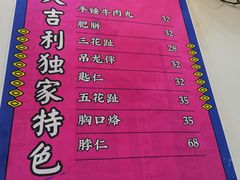 大吉利独家特色
手锤牛肉丸 32
肥胼 32
三花趾 28
吊龙伴 32
匙仁 32
五花趾 35
胸口烙 35
脖仁 68